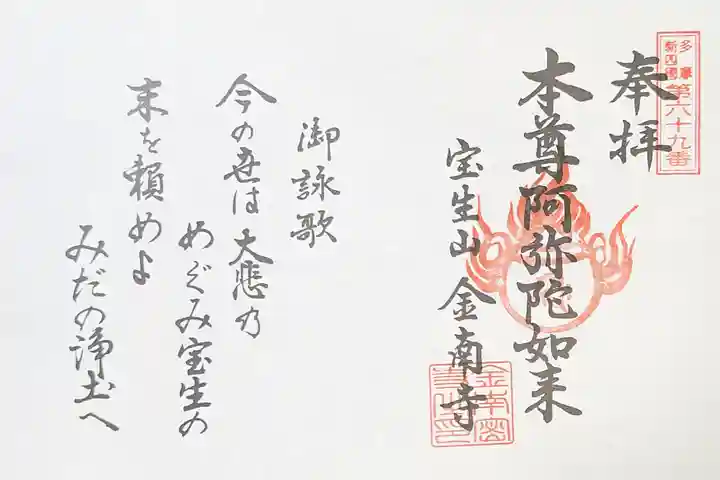 多摩
新四國
第六十九番
奉拝
本尊阿弥陀如来
宝生山 金南寺
御詠歌
今の世は大悲乃
めぐみ宝生の
末を頼めよ
みだの浄土へ